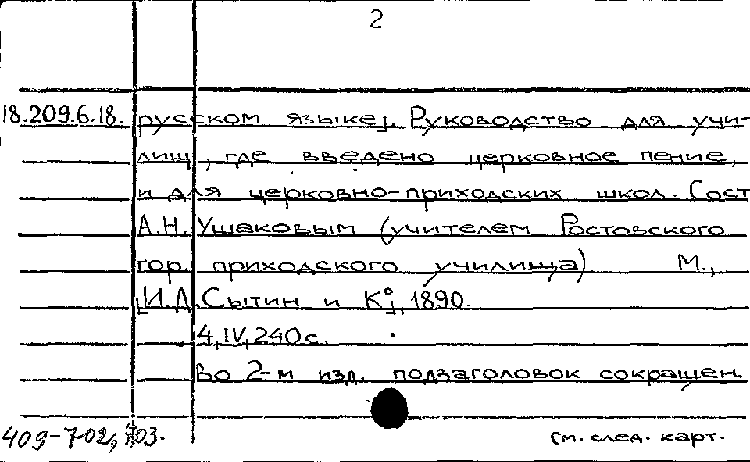 2
18.209.6.18. русском языке]. Руководство для учи-
лищ, где введено церковное пение,
и для церковно-приходских школ. Сост.
А.Н. Ушаковым (учителем Ростовского
гор. приходского училища) М.,
[И.Д. Сытин и К°], 1890.
4, IV, 240 с.
Во 2-м изд. подзаголовок сокращен.
409-702, 703.
См. след. карт.